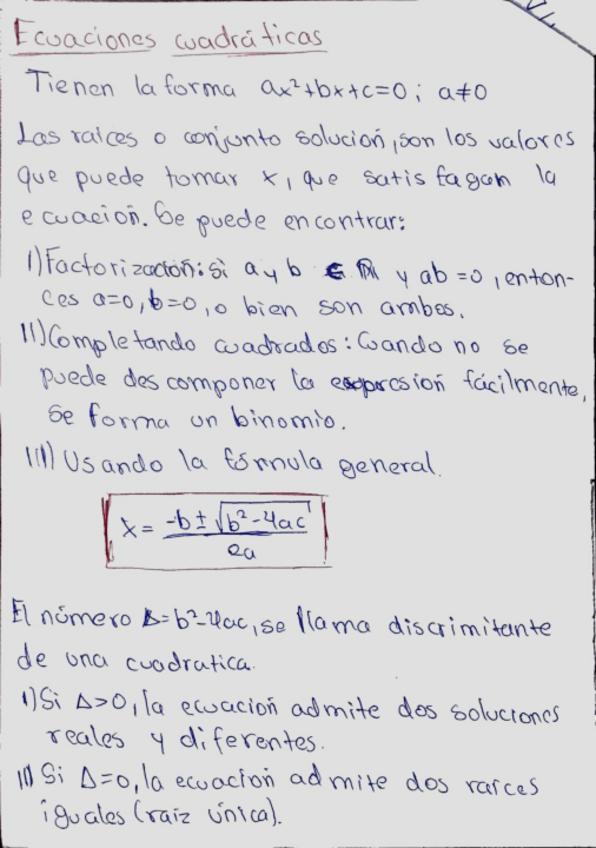 Ecuaciones cuadráticas
Tienen la forma ax²+bx+c=0; a≠0
Las raíces o conjunto solución, son los valores
que puede tomar x, que satisfagan la
ecuación. Se puede encontrar:
I) Factorización: si a y b ∈ ℝ y ab=0, enton-
ces a=0, b=0, o bien son ambos.
II) Completando cuadrados: Cuando no se
puede descomponer la expresión fácilmente,
se forma un binomio.
III) Usando la fórmula general.
x = (-b ± √(b²-4ac)) / 2a
El número Δ=b²-4ac, se llama discrimitante
de una cuadratica.
I) Si Δ>0, la ecuación admite dos soluciones
reales y diferentes.
II) Si Δ=0, la ecuación admite dos raíces
iguales (raíz única).